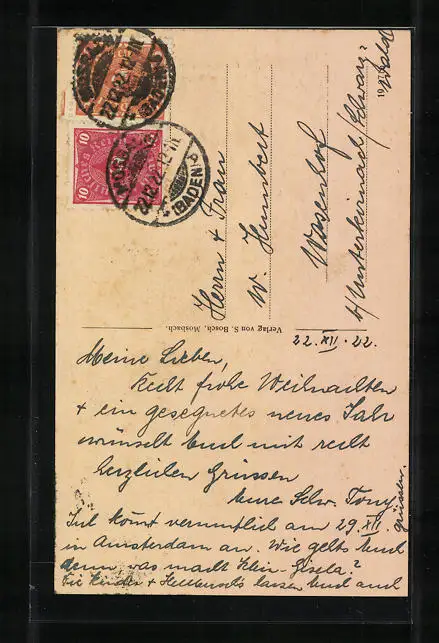 10
10
MOSBACH
22.12.22.12-1N
(BADEN)
Herrn + Frau
W. Humbert
Wasenhof
b/ Unterkirnach/Schwarz-
wald
Verlag von S. Bosch, Mosbach.
22. XII. 22.
Meine Lieben,
Recht frohe Weihnachten
+ ein gesegnetes neues Jahr
wünscht Euch mit recht
herzlichen Grüssen
Eure Schw. Tony
Jul kömt vermutlich am 29. XII.
in Amsterdam an. Wie gehts Euch
denn was macht Klein-Gisela?
Die Kinder + lassen Euch auch
grüssen.